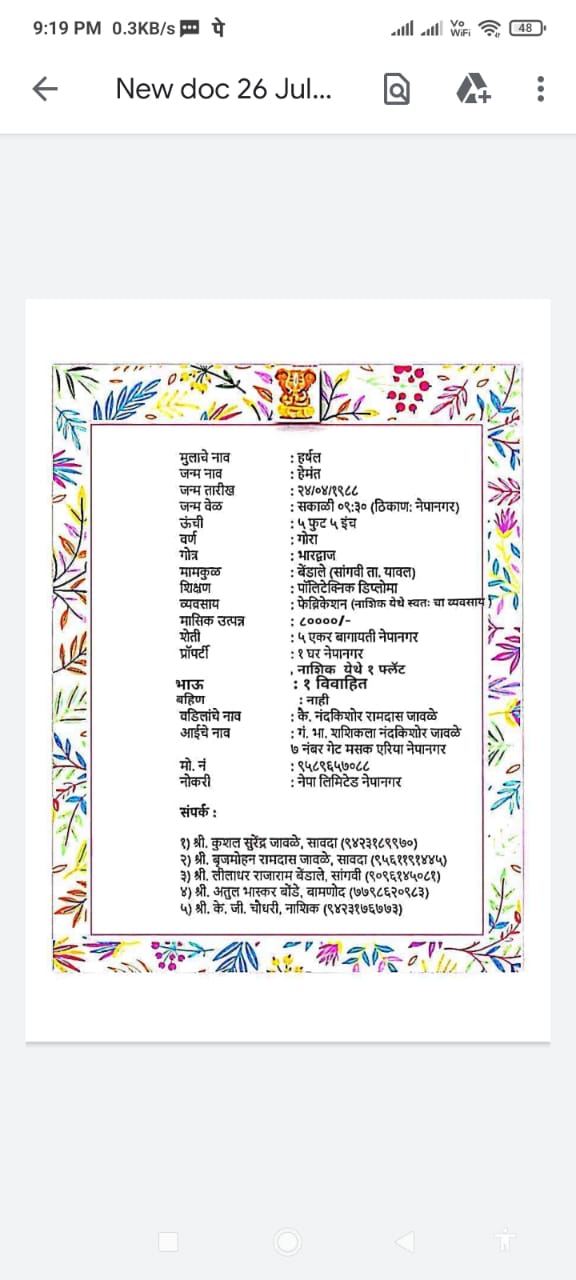 9:19 PM 0.3KB/s पे Vo WiFi 48
New doc 26 Jul...
मुलाचे नाव : हर्षल
जन्म नाव : हेमंत
जन्म तारीख : २४/०४/१९८८
जन्म वेळ : सकाळी ०९:३० (ठिकाण: नेपानगर)
ऊंची : ५ फुट ५ इंच
वर्ण : गोरा
गोत्र : भारद्वाज
मामकुळ : बेंडाले (सांगवी ता. यावल)
शिक्षण : पॉलिटेक्निक डिप्लोमा
व्यवसाय : फेब्रिकेशन (नाशिक येथे स्वतः चा व्यवसाय)
मासिक उत्पन्न : ८००००/-
शेती : ५ एकर बागायती नेपानगर
प्रॉपर्टी : १ घर नेपानगर
, नाशिक येथे १ फ्लॅट
भाऊ : १ विवाहित
बहिण : नाही
वडिलांचे नाव : कै. नंदकिशोर रामदास जावळे
आईचे नाव : गं. भा. शशिकला नंदकिशोर जावळे
७ नंबर गेट मसक एरिया नेपानगर
मो. नं : ९५८९६५७०८८
नोकरी : नेपा लिमिटेड नेपानगर
संपर्क :
१) श्री. कुशल सुरेंद्र जावळे, सावदा (९४२३१८९९७०)
२) श्री. बृजमोहन रामदास जावळे, सावदा (९५६११९१४४५)
३) श्री. लीलाधर राजाराम बेंडाले, सांगवी (९०९६१४५०८१)
४) श्री. अतुल भास्कर बोंडे, बामणोद (७७९८६२०९८३)
५) श्री. के. जी. चौधरी, नाशिक (९४२३१७६७७३)